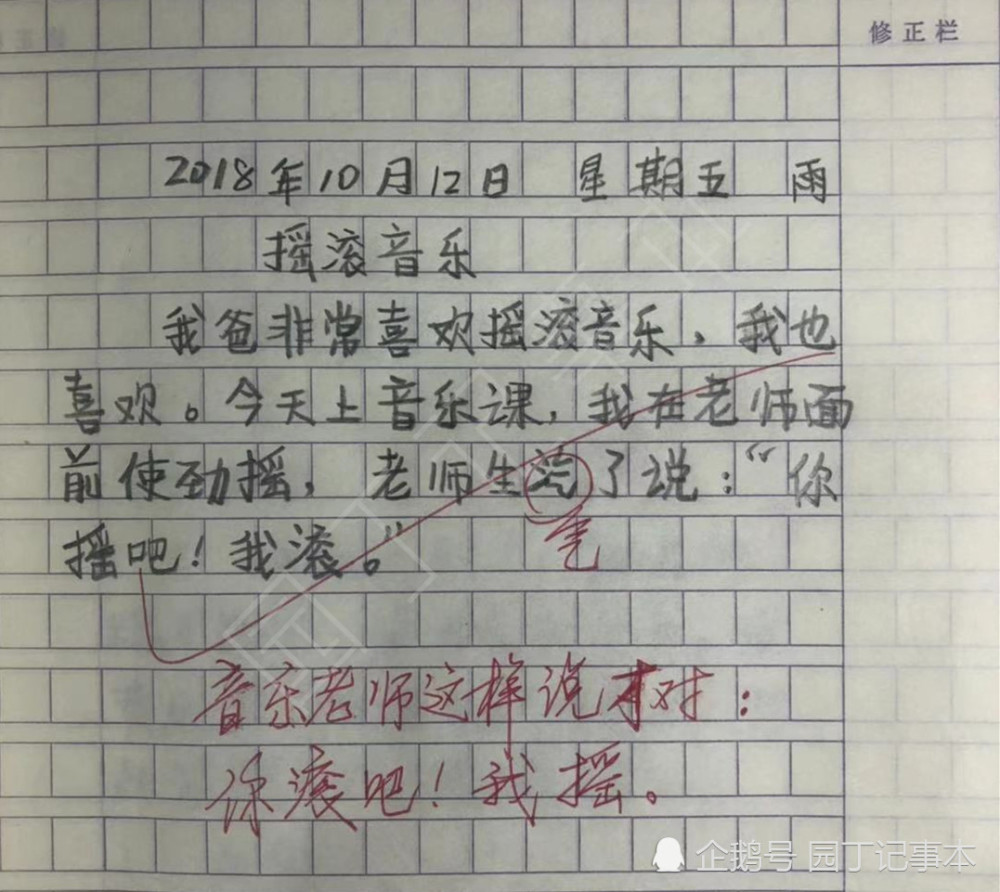 修正栏
2018年10月12日 星期五 雨
摇滚音乐
我爸非常喜欢摇滚音乐，我也
喜欢。今天上音乐课，我在老师面
前使劲摇，老师生汽了说：“你
摇吧！我滚。”
气
音乐老师这样说才对：
你滚吧！我摇。
企鹅号 园丁记事本